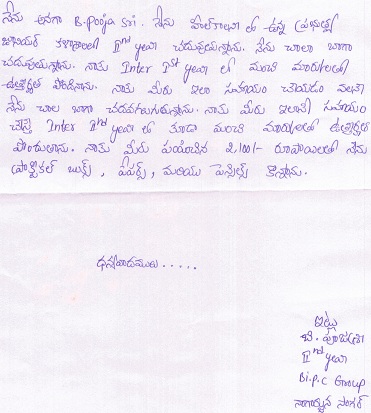 నేను అనగా B.pooja sri. నేను హిల్‌కాలని లో ఉన్న ప్రభుత్వ
జూనియర్ కళాశాలలో IInd year చదువుచున్నాను. నేను చాలా బాగా
చదువుచున్నాను. నాకు Inter Ist year లో మంచి మార్కులతో
ఉత్తీర్ణత పొందినాను. నాకు మీరు ఇలా సహాయం చేయడం వలన
నేను చాల బాగా చదవగలుగుతున్నాను. నాకు మీరు ఇలానే సహాయం
చేస్తే Inter IInd year లో కూడా మంచి మార్కులతో ఉత్తీర్ణత
పొందుతాను. నాకు మీరు పంపించిన 2,100/- రూపాయిలతో నేను
ప్రాక్టికల్ బుక్స్, పేపర్స్, మరియు పెన్సిల్స్ కొన్నాను.
ధన్యవాదములు.....
ఇట్లు
బి. పూజాశ్రీ
IInd year
Bi.p.c Group
నాగార్జున సాగర్